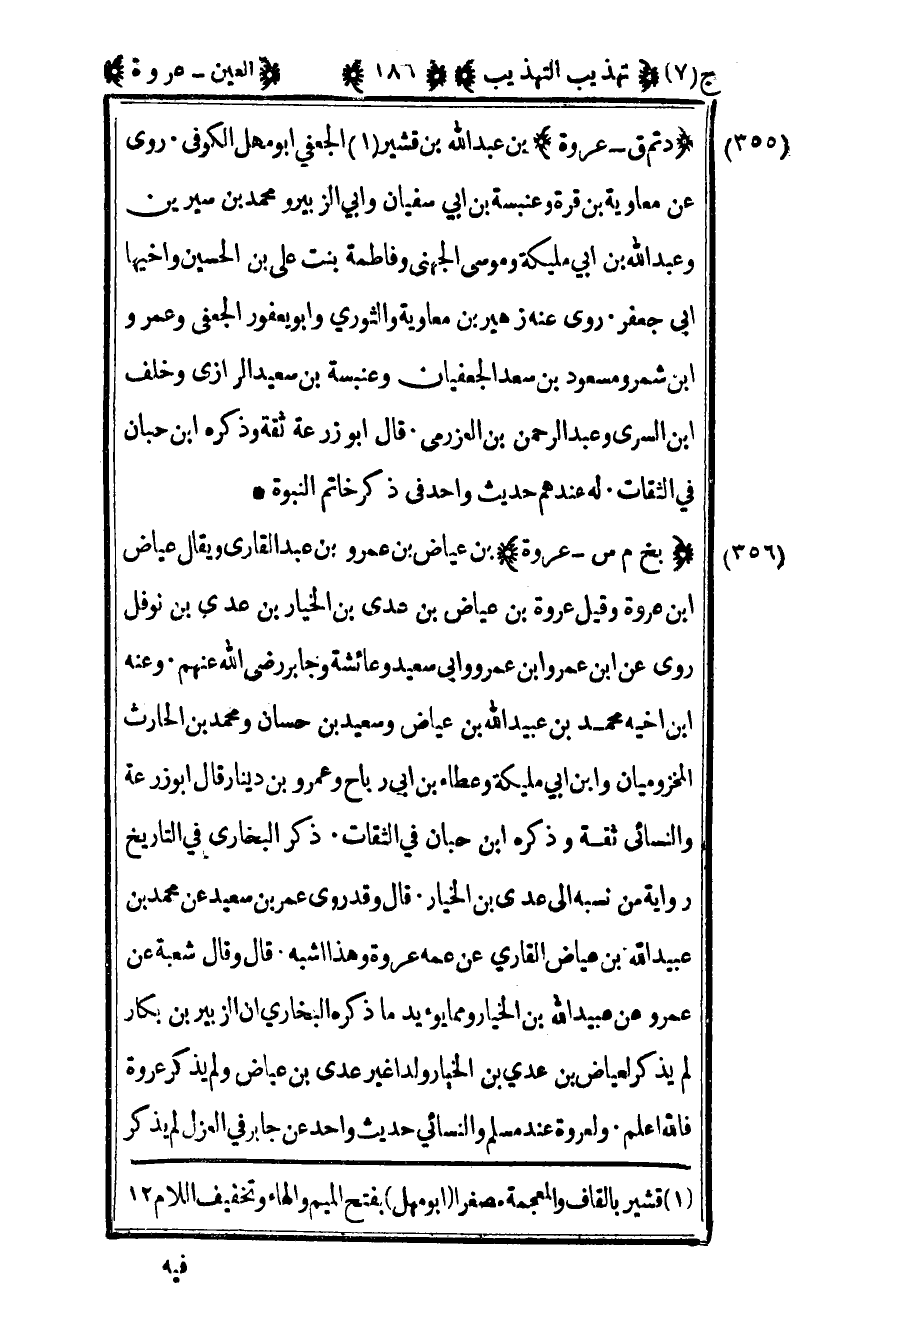 ج (٧) ﴿ تهذيب التهذيب ﴾ ﴿ ١٨٦ ﴾ ﴿ العين - ع ر و ة ﴾
(٣٥٥) ﴿ دتم ق - عروة ﴾ بن عبد الله بن قشير (١) الجعفي ابو مهل الكوفى . روى
عن معاوية بن قرة وعنبسة بن ابي سفيان وابي الزبير و محمد بن سيرين
وعبد الله بن ابي مليكة وموسى الجهنى وفاطمة بنت على بن الحسين واخيها
ابى جعفر . روى عنه زهير بن معاوية والثوري وابو يعفور الجعفى وعمرو
ابن شمر ومسعود بن سعد الجعفيان وعنبسة بن سعيد الرازى وخلف
ابن السرى وعبد الرحمن بن العزرمى . قال ابو زرعة ثقة وذكره ابن حبان
في الثقات . له عندهم حديث واحد فى ذكر خاتم النبوة •
(٣٥٦) ﴿ بخ م س - عروة ﴾ بن عياض بن عمرو بن عبد القارى ويقال عياض
ابن عروة وقيل عروة بن عياض بن عدى بن الخيار بن عدي بن نوفل
روى عن ابن عمر وابن عمرو وابي سعيد وعائشة وجابر رضى الله عنهم . وعنه
ابن اخيه محمد بن عبيد الله بن عياض وسعيد بن حسان ومحمد بن الحارث
المخزوميان وابن ابي مليكة وعطاء بن ابى رباح وعمرو بن دينار قال ابو زرعة
والنسائى ثقة و ذكره ابن حبان في الثقات . ذكر البخارى في التاريخ
رواية من نسبه الى عدى بن الخيار . قال وقد روى عمر بن سعيد عن محمد بن
عبيد الله بن عياض القاري عن عمه عروة وهذا اشبه . قال وقال شعبة عن
عمرو عن عبيد الله بن الخيار ومما يوءيد ما ذكره البخاري ان الزبير بن بكار
لم يذكر لعياض بن عدي بن الخيار ولدا غير عدى بن عياض ولم يذكر عروة
فالله اعلم . ولعروة عند مسلم والنسائي حديث واحد عن جابر في العزل لم يذكر
(١) قشير بالقاف والمعجمة مصغرا (ابو مهل) بفتح الميم والهاء وتخفيف اللام ١٢
فيه